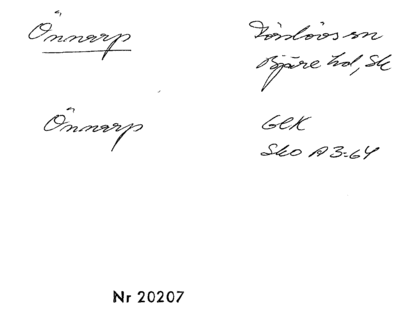 Önnarp
Förslövs sn
Bjäre hd, Sk
Önnarp
GEK
Sko A3-64
Nr 20207